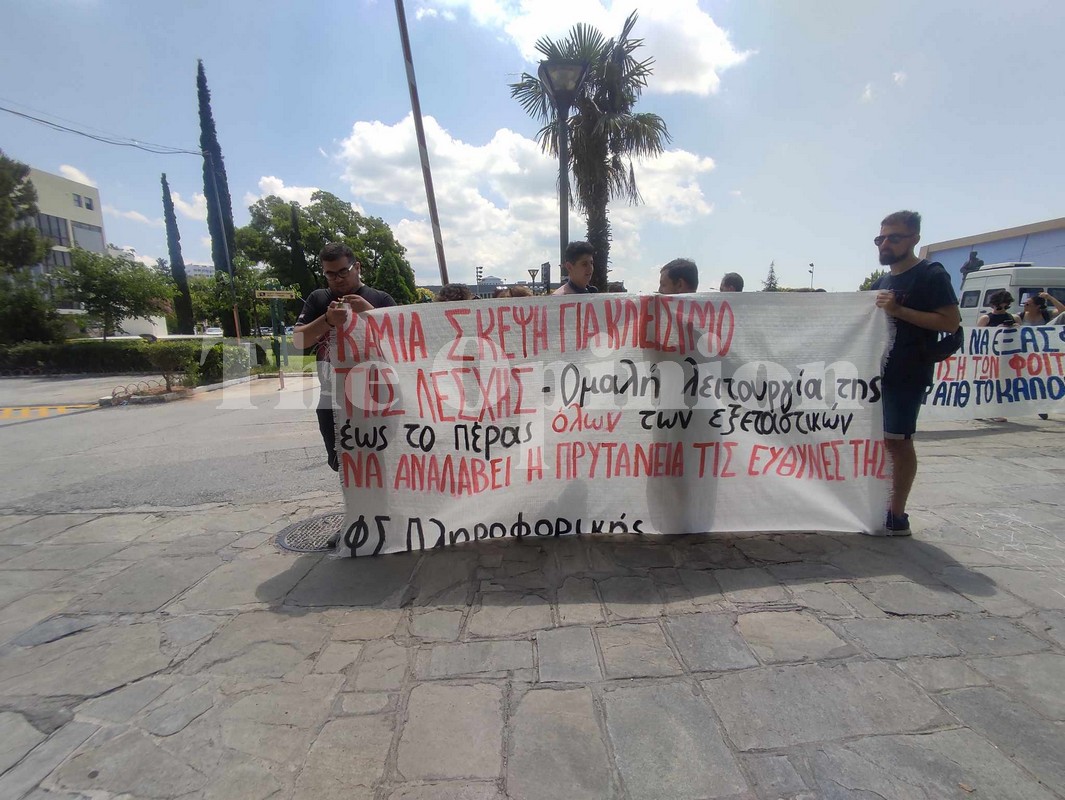 ΚΑΜΙΑ ΣΚΕΨΗ ΓΙΑ ΚΛΕΙΣΙΜΟ
ΤΗΣ ΛΕΣΧΗΣ - Ομαλή λειτουργία της
έως το πέρας όλων των εξεταστικών
ΝΑ ΑΝΑΛΑΒΕΙ Η ΠΡΥΤΑΝΕΙΑ ΤΙΣ ΕΥΘΥΝΕΣ ΤΗΣ
ΦΣ Πληροφορικής
ΝΑ ΕΞΑΣ
ΣΗ ΤΩΝ ΦΟΙΤ
ΑΠΟ ΤΟ ΚΑΛΟ
The Opinion